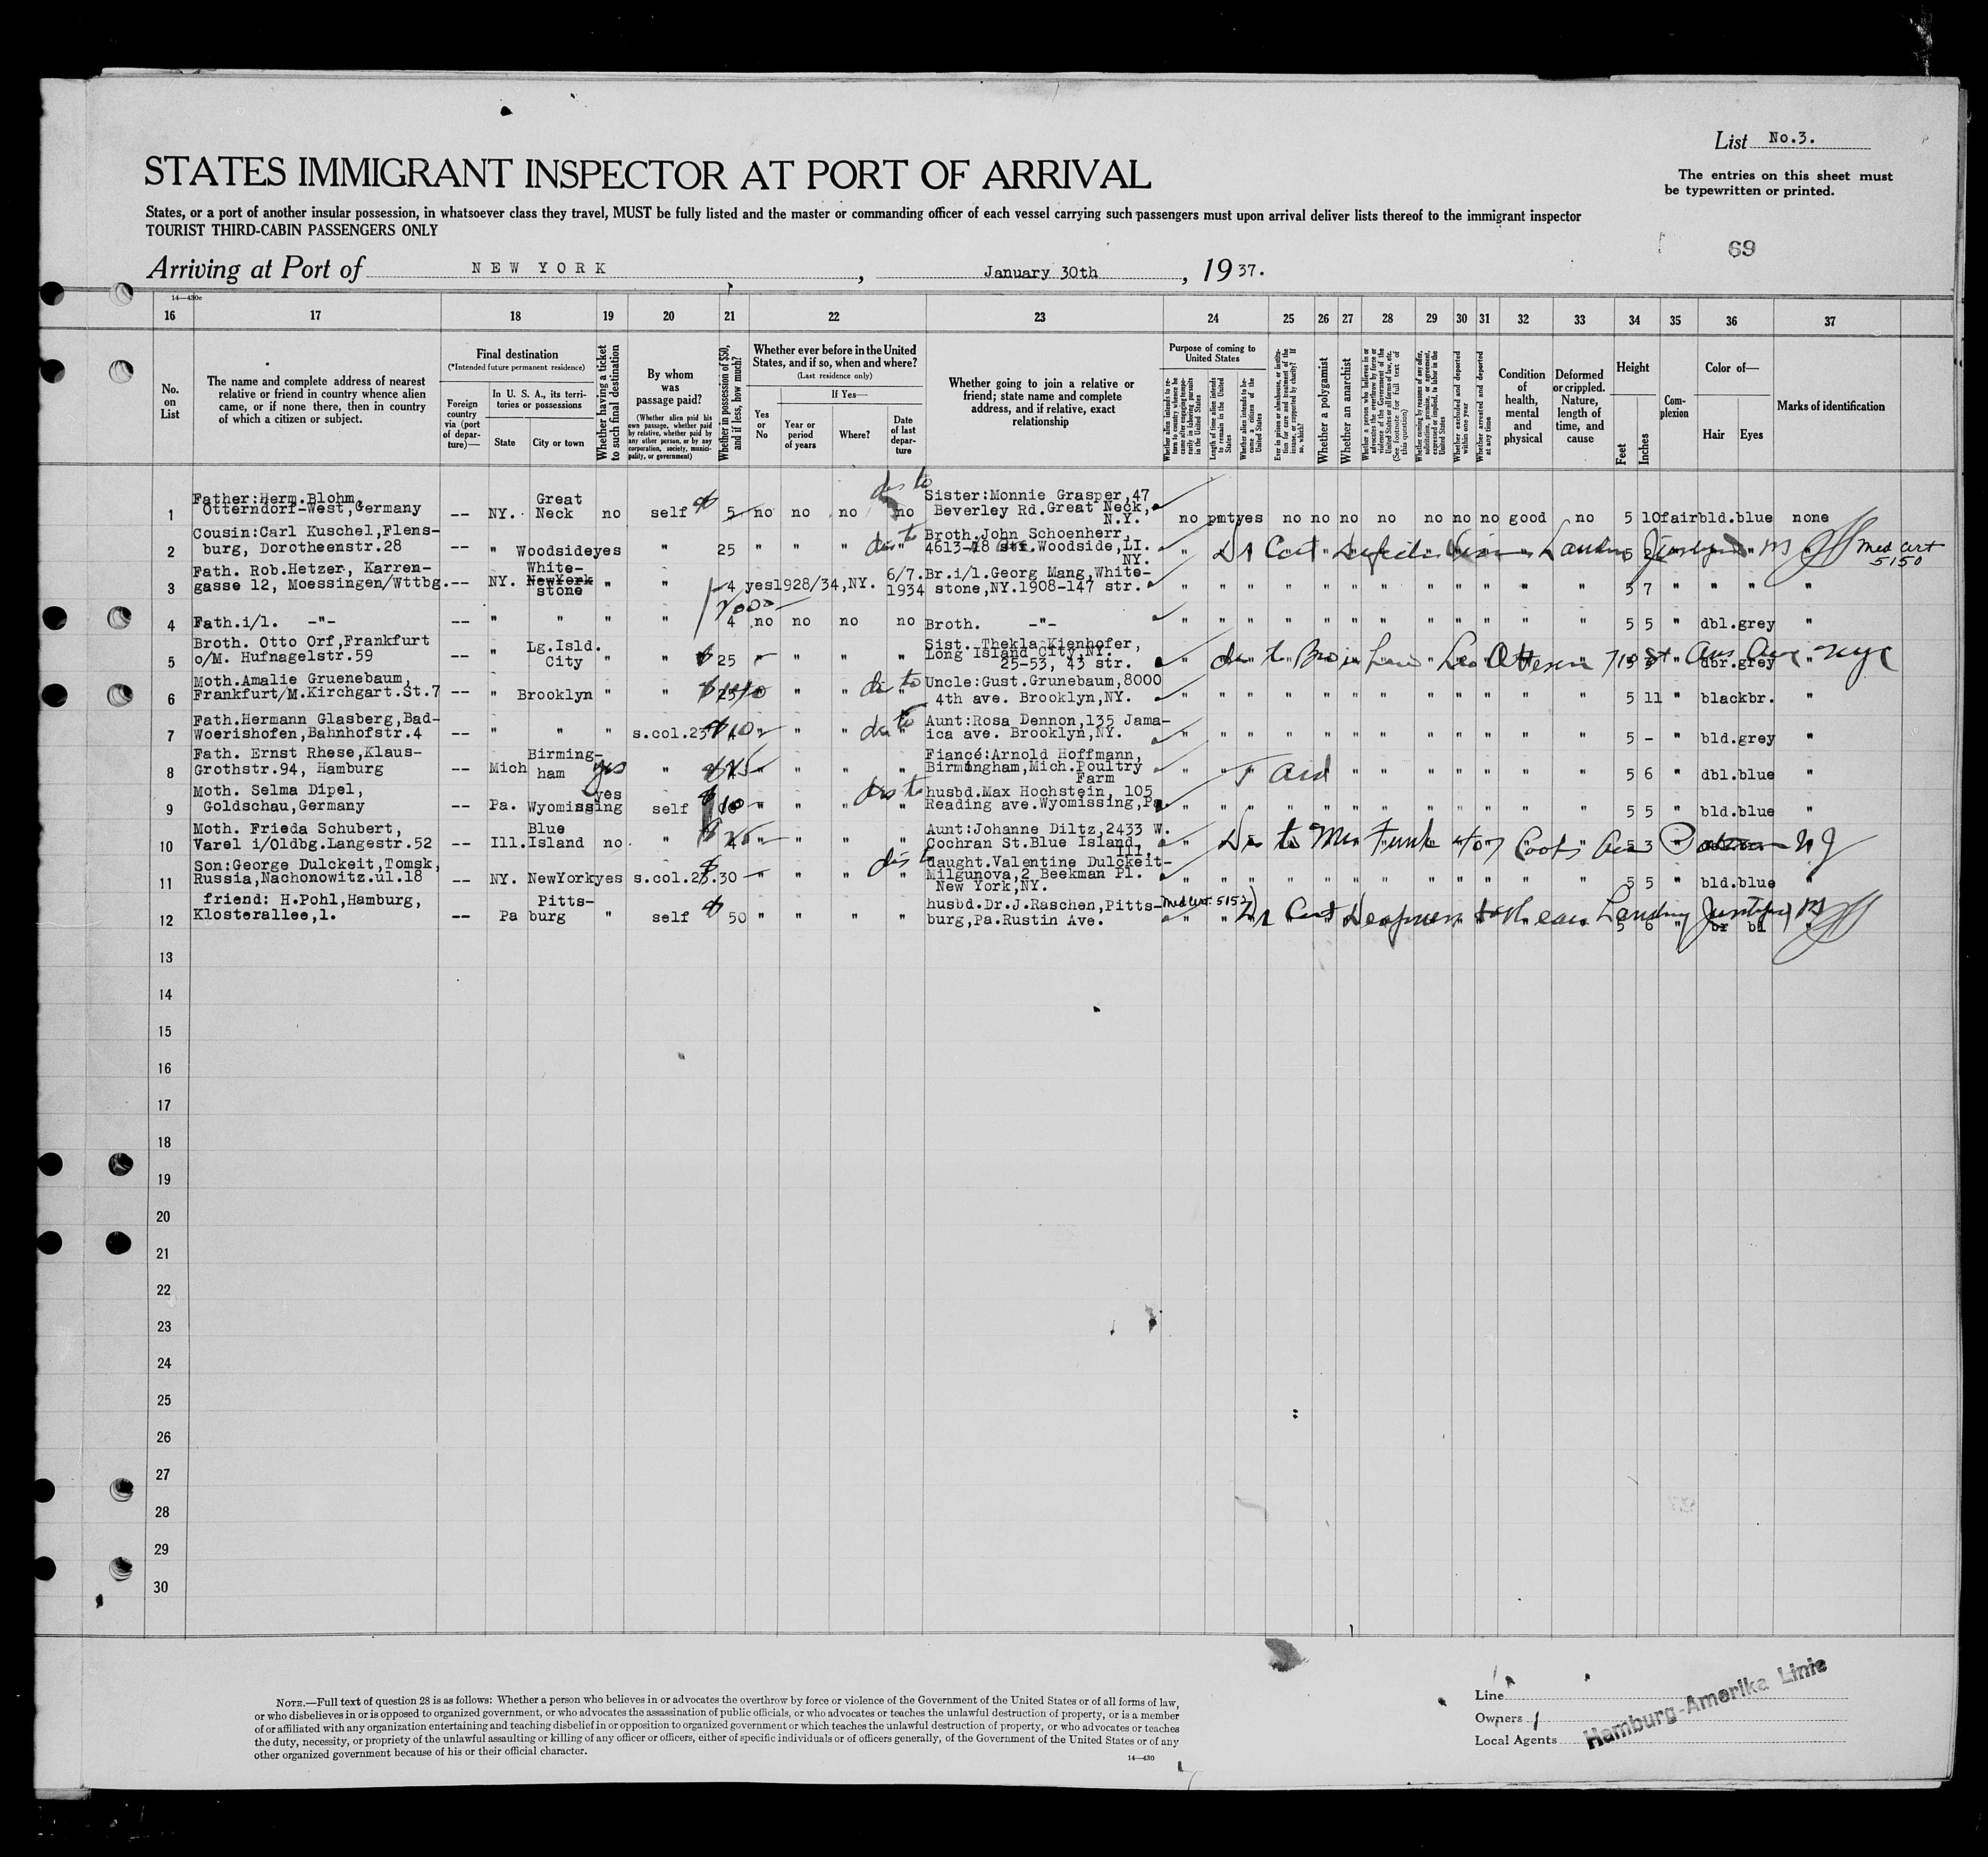 List No.3.
STATES IMMIGRANT INSPECTOR AT PORT OF ARRIVAL
The entries on this sheet must
be typewritten or printed.
States, or a port of another insular possession, in whatsoever class they travel, MUST be fully listed and the master or commanding officer of each vessel carrying such passengers must upon arrival deliver lists thereof to the immigrant inspector
TOURIST THIRD-CABIN PASSENGERS ONLY
69
Arriving at Port of NEW YORK, January 30th, 1937.
14—430c
16 17 18 19 20 21 22 23 24 25 26 27 28 29 30 31 32 33 34 35 36 37
No. on List
The name and complete address of nearest
relative or friend in country whence alien
came, or if none there, then in country
of which a citizen or subject.
Final destination
(*Intended future permanent residence)
Foreign country via (port of departure)—
In U. S. A., its territories or possessions
State
City or town
Whether having a ticket to such final destination
By whom was passage paid?
(Whether alien paid his own passage, whether paid by relative, whether paid by any other person, or by any corporation, society, municipality, or government)
Whether in possession of $50, and if less, how much?
Whether ever before in the United States, and if so, when and where?
(Last residence only)
Yes or No
If Yes—
Year or period of years
Where?
Date of last departure
Whether going to join a relative or
friend; state name and complete
address, and if relative, exact
relationship
Purpose of coming to United States
Whether alien intends to return to country whence he came after engaging temporarily in laboring pursuits in the United States
Length of time alien intends to remain in the United States
Whether alien intends to become a citizen of the United States
Ever in prison or almshouse, or institution for care and treatment of the insane, or supported by charity? If so, which?
Whether a polygamist
Whether an anarchist
Whether a person who believes in or advocates the overthrow by force or violence of the Government of the United States or all forms of law, etc. (See footnote for full text of this question)
Whether coming by reasons of any offer, solicitation, promise, or agreement, expressed or implied, to labor in the United States
Whether excluded and deported within one year
Whether arrested and deported at any time
Condition of health, mental and physical
Deformed or crippled. Nature, length of time, and cause
Height
Feet
Inches
Complexion
Color of—
Hair
Eyes
Marks of identification
1 Father:Herm.Blohm,
Otterndorf-West,Germany -- NY. Great Neck no self $ 5 no no no no
Sister:Monnie Grasper,47
Beverley Rd.Great Neck,
N.Y. no pmt yes no no no no no no no good no 5 10 fair bld. blue none
2 Cousin:Carl Kuschel,Flens-
burg, Dorotheenstr.28 -- " Woodside yes " 25 " " " "
Broth.John Schoenherr,
4613- str.Woodside,LI.
NY. Med Cert
5150
3 Fath. Rob.Hetzer, Karren-
gasse 12, Moessingen/Wttbg. -- NY. White-
NewYork
stone " " 4 yes 1928/34,NY. 6/7.
1934
Br.i/l.Georg Mang,White-
stone,NY.1908-147 str. " " " " " " " " " " " " 5 7 " " " "
4 Fath.i/l. -"- -- " " " " 4 no no no no Broth. -"- " " " " " " " " " " " " 5 5 " dbl. grey "
5 Broth. Otto Orf,Frankfurt
o/M. Hufnagelstr.59 -- " Lg.Isld.
City " " $ 25 " " " "
Sist. Thekla Kienhofer,
Long Island City,NY.
25-53, 43 str. dbr. grey
6 Moth.Amalie Gruenebaum,
Frankfurt/M.Kirchgart.St.7 -- " Brooklyn " " " " "
Uncle:Gust.Grunebaum,8000
4th ave. Brooklyn,NY. " " " " " " " " " " " " 5 11 " black br. "
7 Fath.Hermann Glasberg,Bad-
Woerishofen,Bahnhofstr.4 -- " " " s.col.23 " " " "
Aunt:Rosa Dennon,135 Jama-
ica ave. Brooklyn,NY. " " " " " " " " " " " " 5 - " bld. grey "
8 Fath. Ernst Rhese,Klaus-
Grothstr.94, Hamburg -- Mich Birming-
ham yes " " " " "
Fiancé:Arnold Hoffmann,
Birmingham,Mich.Poultry
Farm 5 6 " dbl. blue "
9 Moth. Selma Dipel,
Goldschau,Germany -- Pa. Wyomissing yes self $ 10 " " " "
husbd.Max Hochstein, 105
Reading ave.Wyomissing,Pa. " " " " " " " " " " " " 5 5 " bld. blue "
10 Moth. Frieda Schubert,
Varel i/Oldbg.Langestr.52 -- Ill. Blue
Island no " " " " "
Aunt:Johanne Diltz,2433 W.
Cochran St.Blue Island,
Ill. 5 3 N J
11 Son:George Dulckeit,Tomsk,
Russia,Nachonowitz.ul.18 -- NY. NewYork yes s.col.23. $ 30 " " " "
daught.Valentine Dulckeit-
Milgunova,2 Beekman Pl.
New York,NY. " " " " " " " " " " " " 5 5 " bld. blue "
12 friend: H.Pohl,Hamburg,
Klosterallee,1. -- Pa Pitts-
burg " self $ 50 " " " "
husbd.Dr.J.Raschen,Pitts-
burg,Pa.Rustin Ave. Med Cert 5152 5 6 " br bl
13
14
15
16
17
18
19
20
21
22
23
24
25
26
27
28
29
30
NOTE.—Full text of question 28 is as follows: Whether a person who believes in or advocates the overthrow by force or violence of the Government of the United States or of all forms of law,
or who disbelieves in or is opposed to organized government, or who advocates the assassination of public officials, or who advocates or teaches the unlawful destruction of property, or is a member
of or affiliated with any organization entertaining and teaching disbelief in or opposition to organized government or which teaches the unlawful destruction of property, or who advocates or teaches
the duty, necessity, or propriety of the unlawful assaulting or killing of any officer or officers, either of specific individuals or of officers generally, of the Government of the United States or of any
other organized government because of his or their official character.
14—430
Line
Owners
Local Agents
Hamburg-Amerika Linie